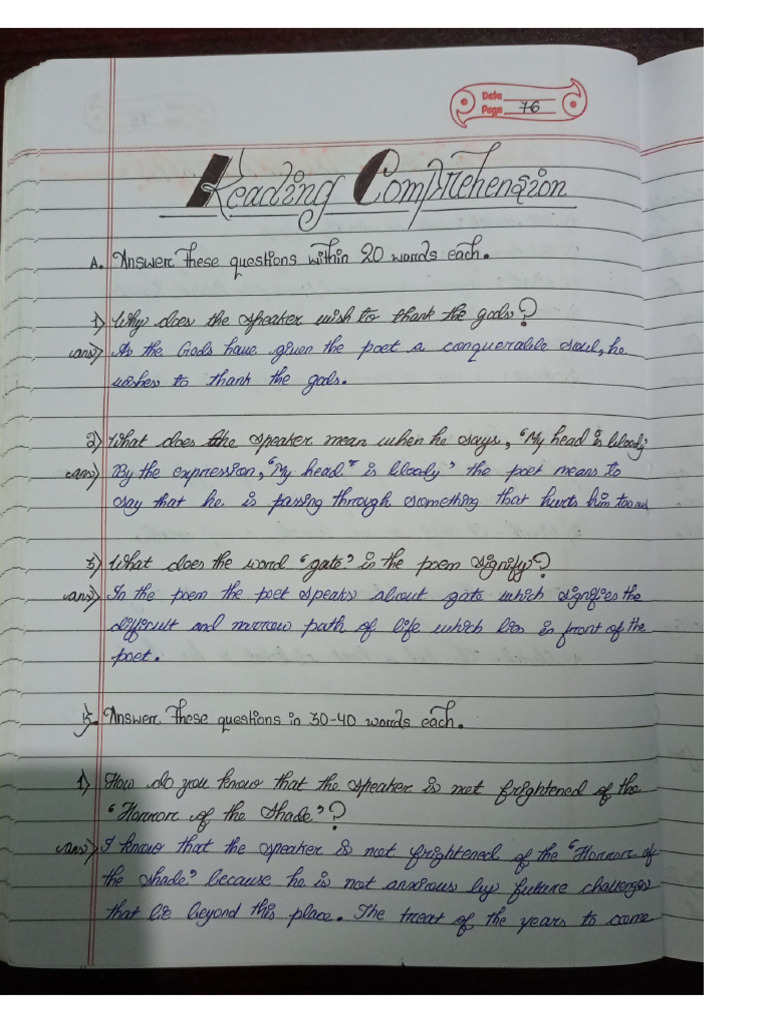 Date
Page 76
Reading Comprehension
A. Answer these questions within 20 words each.
1) Why does the speaker wish to thank the gods?
ans) As the Gods have given the poet a conquerable soul, he
wishes to thank the gods.
2) What does the speaker mean when he says, "My head is bloody"
ans) By the expression, "My head" is bloody" the poet means to
say that he is passing through something that hurts him too
3) What does the word "gate" in the poem signify?
ans) In the poem the poet speaks about gate which signifies the
difficult and narrow path of life which lies in front of the
poet.
Answer these questions in 30-40 words each.
1) How do you know that the speaker is not frightened of the
"Horror of the Shade"?
ans) I know that the speaker is not frightened of the "Horror of
the shade" because he is not anxious by future challenges
that lie beyond this place. The treat of the years to come